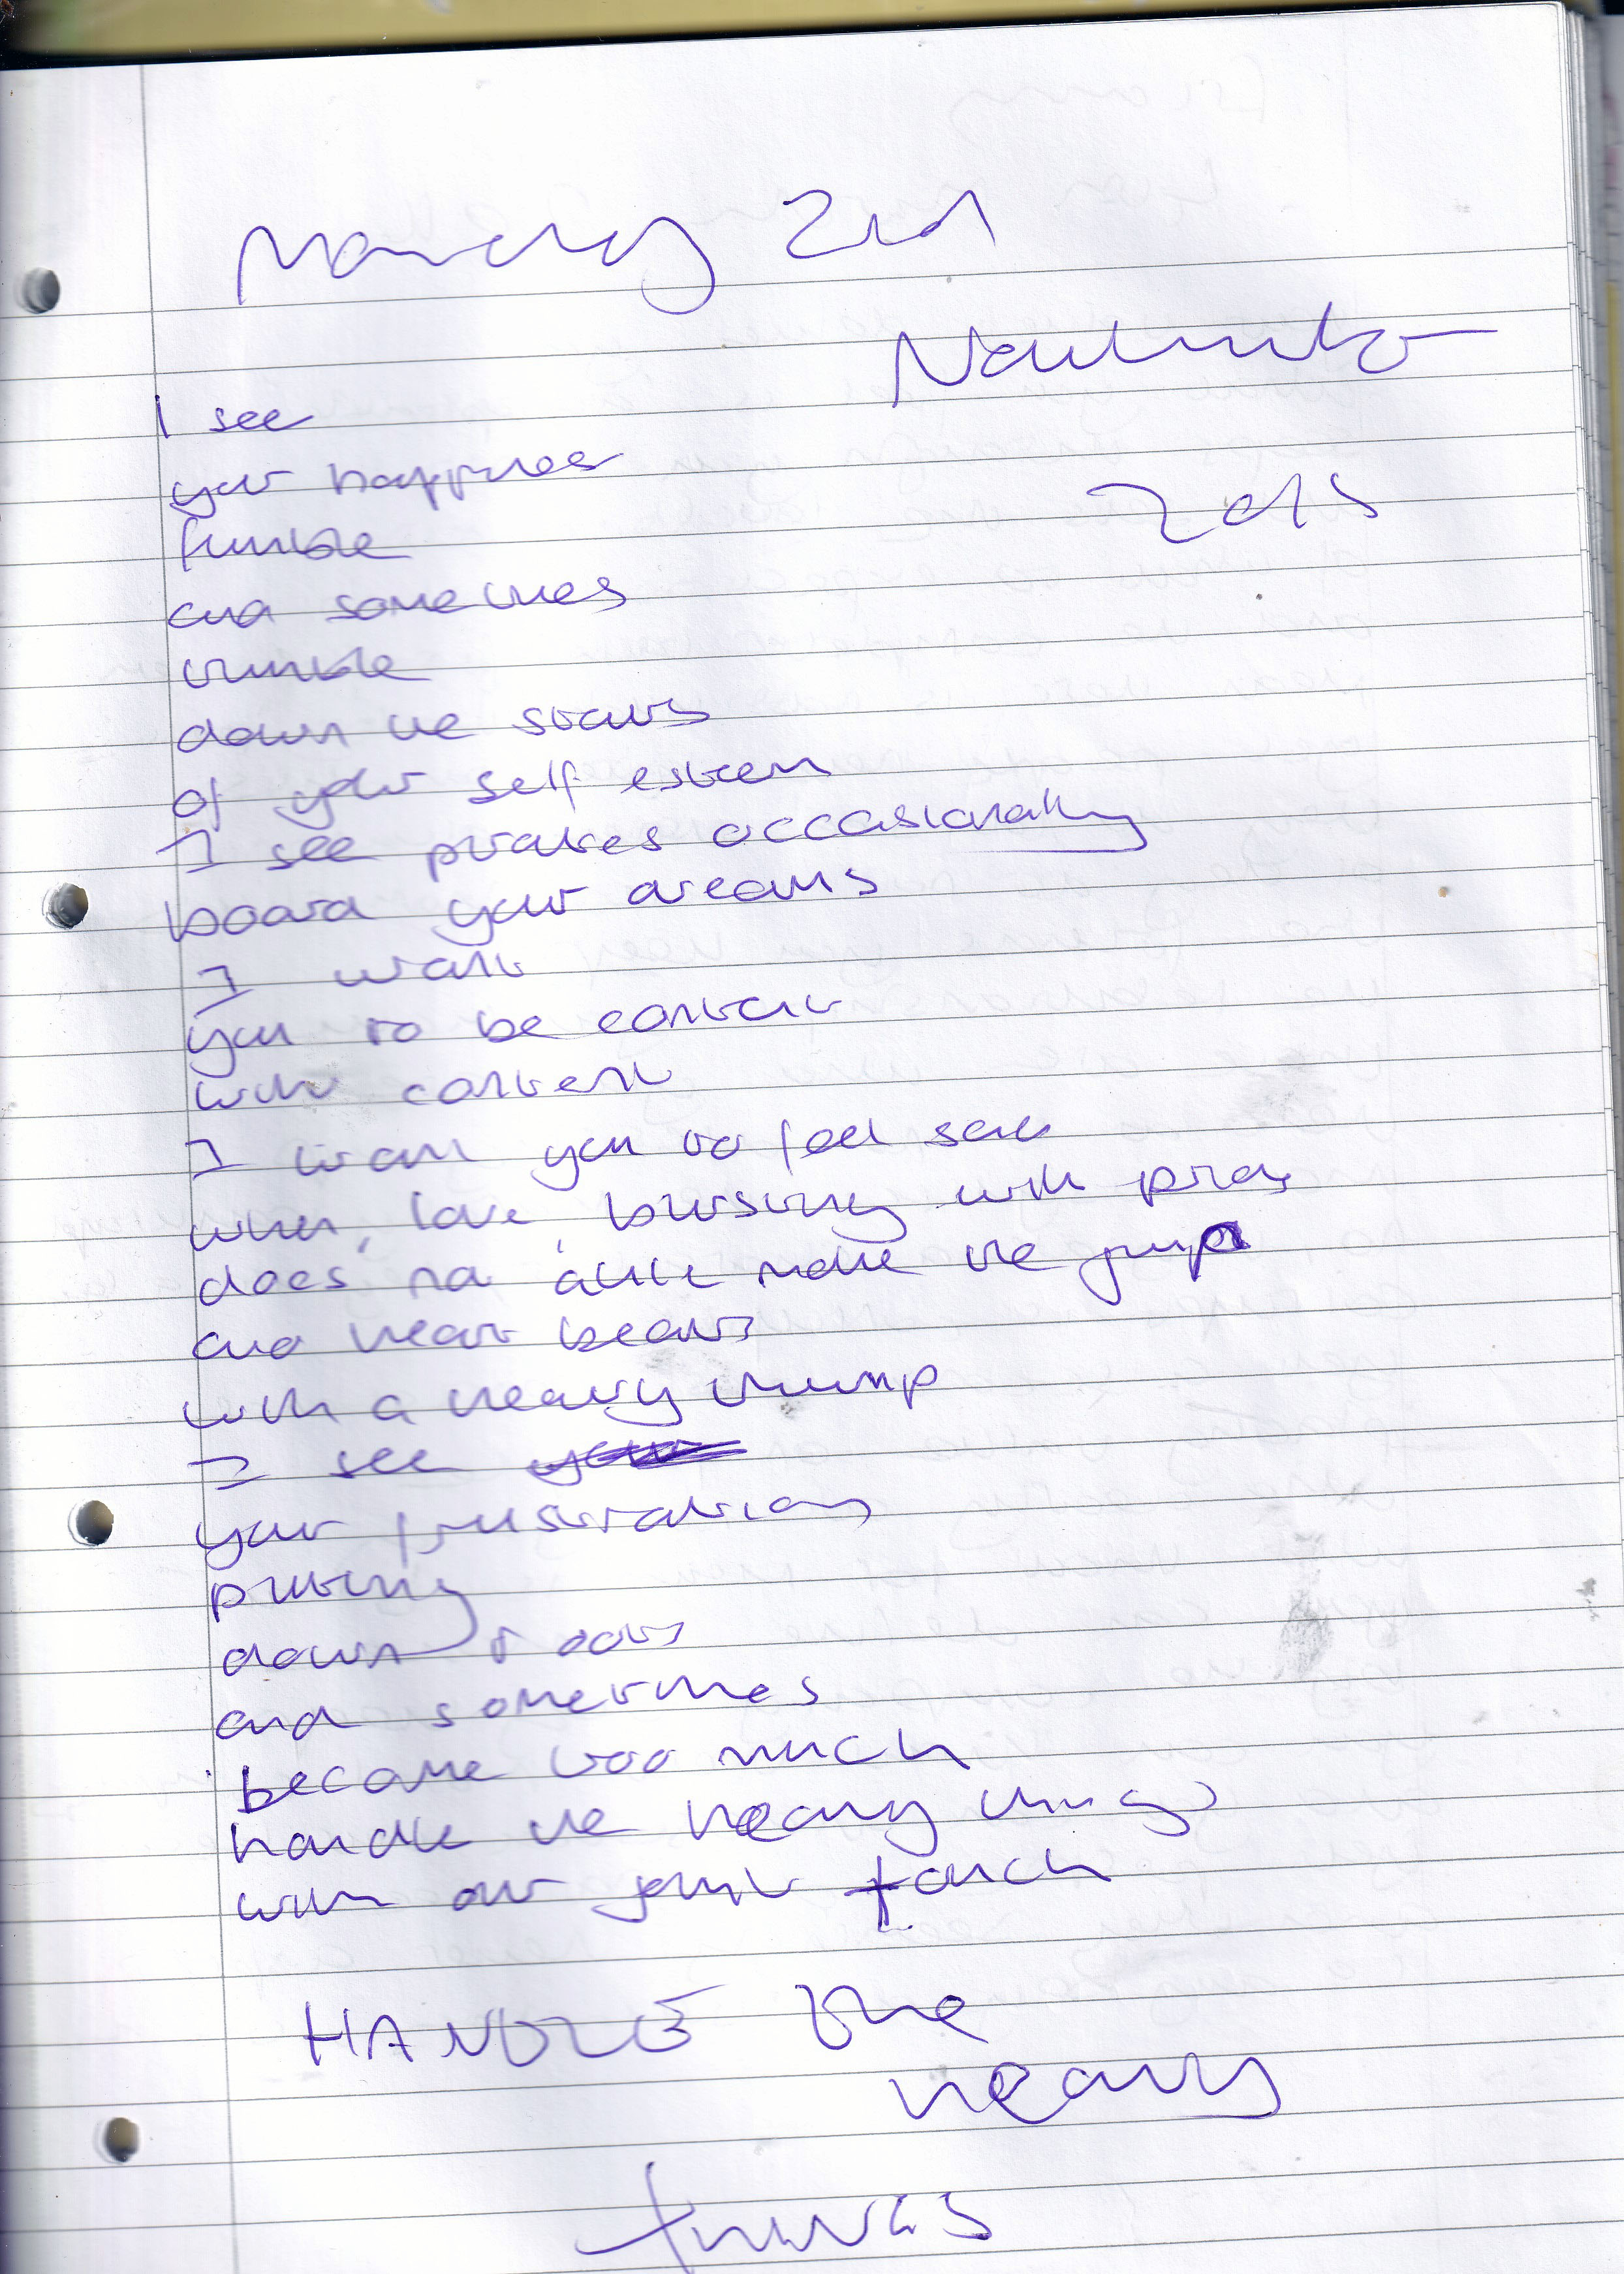 Monday 2nd
November
2015
I see
your happiness
fumble
and sometimes
tumble
down the stairs
of your self esteem
I see pirates occasionally
board your dreams
I want
you to be content
with content
I want you to feel safe
when, love, bursting with pride
does na quite make the jump
and heart beats
with a heavy thump
I see
your frustrations
putting
down roots
and sometimes
become too much
handle the heavy things
with our gentle touch
HANDLE the
heavy
things